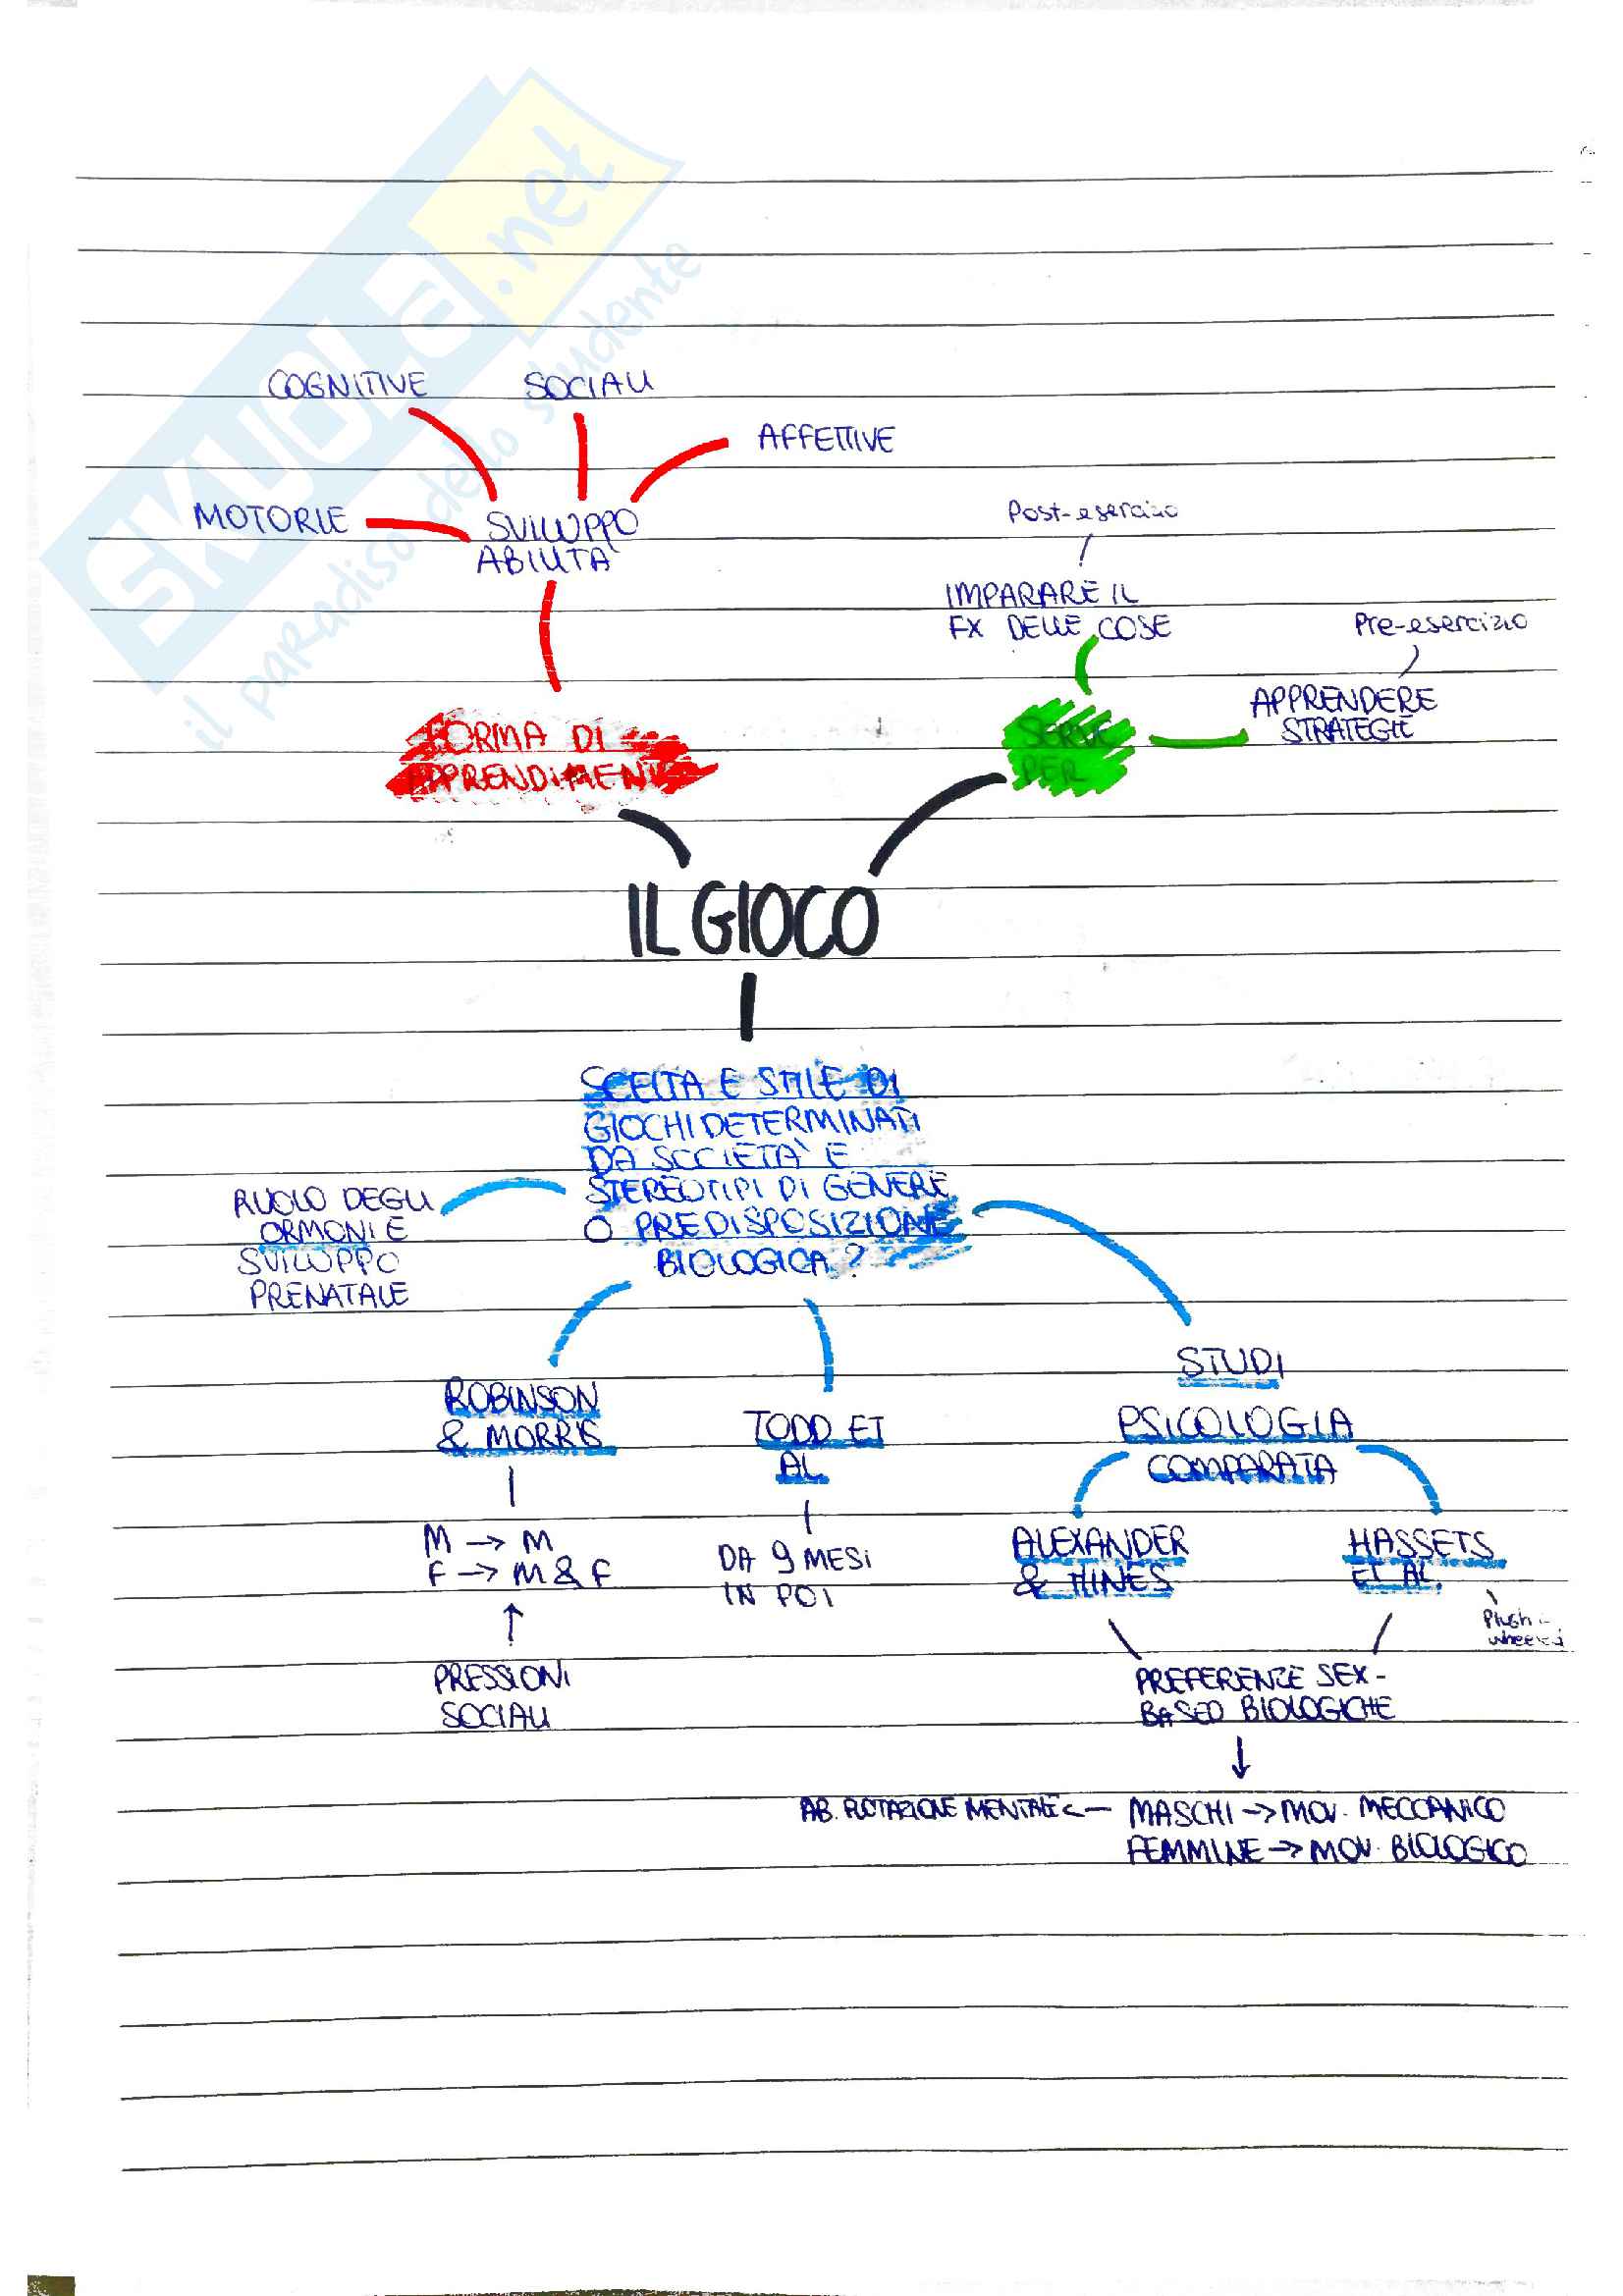 SKUOLA.net
il paradiso dello studente
COGNITIVE
SOCIALI
AFFETTIVE
MOTORIE
SVILUPPO
ABILITÀ
Post-esercizio
IMPARARE IL
FX DELLE COSE
Pre-esercizio
APPRENDERE
STRATEGIE
FORMA DI
APPRENDIMENTO
SERVE
PER
IL GIOCO
SCELTA E STILE DI
GIOCHI DETERMINATI
DA SOCIETÀ E
STEREOTIPI DI GENERE
O PREDISPOSIZIONE
BIOLOGICA?
RUOLO DEGLI
ORMONI E
SVILUPPO
PRENATALE
ROBINSON
& MORRIS
M → M
F → M & F
↑
PRESSIONI
SOCIALI
TODD ET
AL
DA 9 MESI
IN POI
STUDI
PSICOLOGIA
COMPARATA
ALEXANDER
& HINES
HASSETS
ET AL.
Plush -
wheeled
PREFERENZE SEX-
BASED BIOLOGICHE
↓
AB. ROTAZIONE MENTALE <— MASCHI → MOV. MECCANICO
FEMMINE → MOV. BIOLOGICO